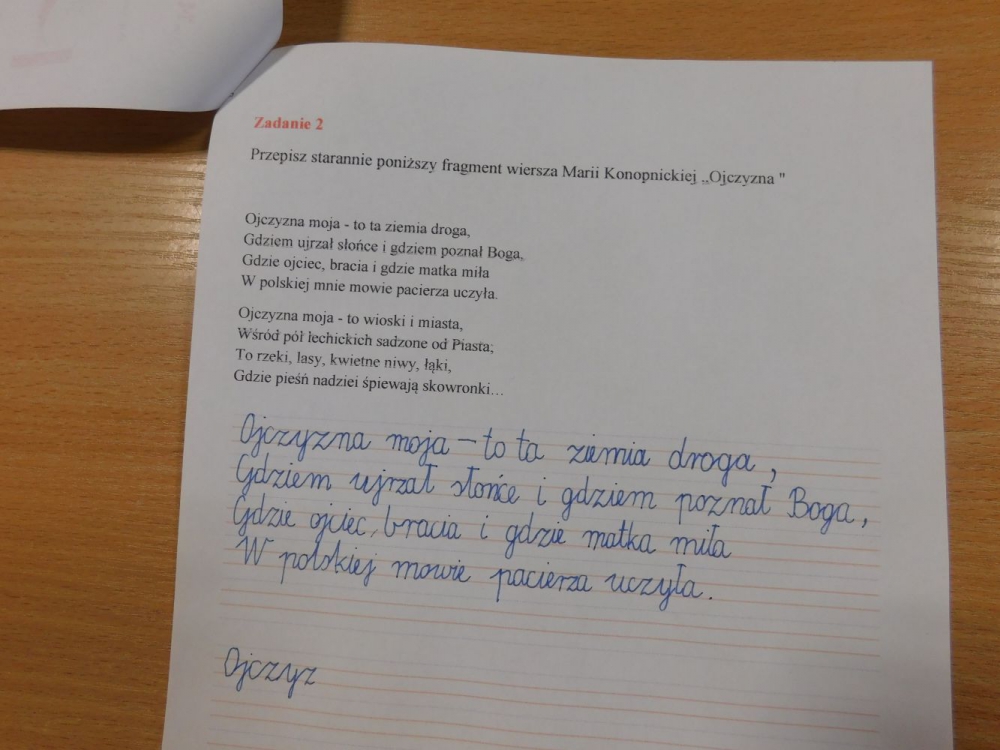 Zadanie 2
Przepisz starannie poniższy fragment wiersza Marii Konopnickiej „Ojczyzna "
Ojczyzna moja - to ta ziemia droga,
Gdziem ujrzał słońce i gdziem poznał Boga,
Gdzie ojciec, bracia i gdzie matka miła
W polskiej mnie mowie pacierza uczyła.
Ojczyzna moja - to wioski i miasta,
Wśród pól lechickich sadzone od Piasta;
To rzeki, lasy, kwietne niwy, łąki,
Gdzie pieśń nadziei śpiewają skowronki...
Ojczyzna moja – to ta ziemia droga,
Gdziem ujrzał słońce i gdziem poznał Boga,
Gdzie ojciec, bracia i gdzie matka miła
W polskiej mowie pacierza uczyła.
Ojczyz